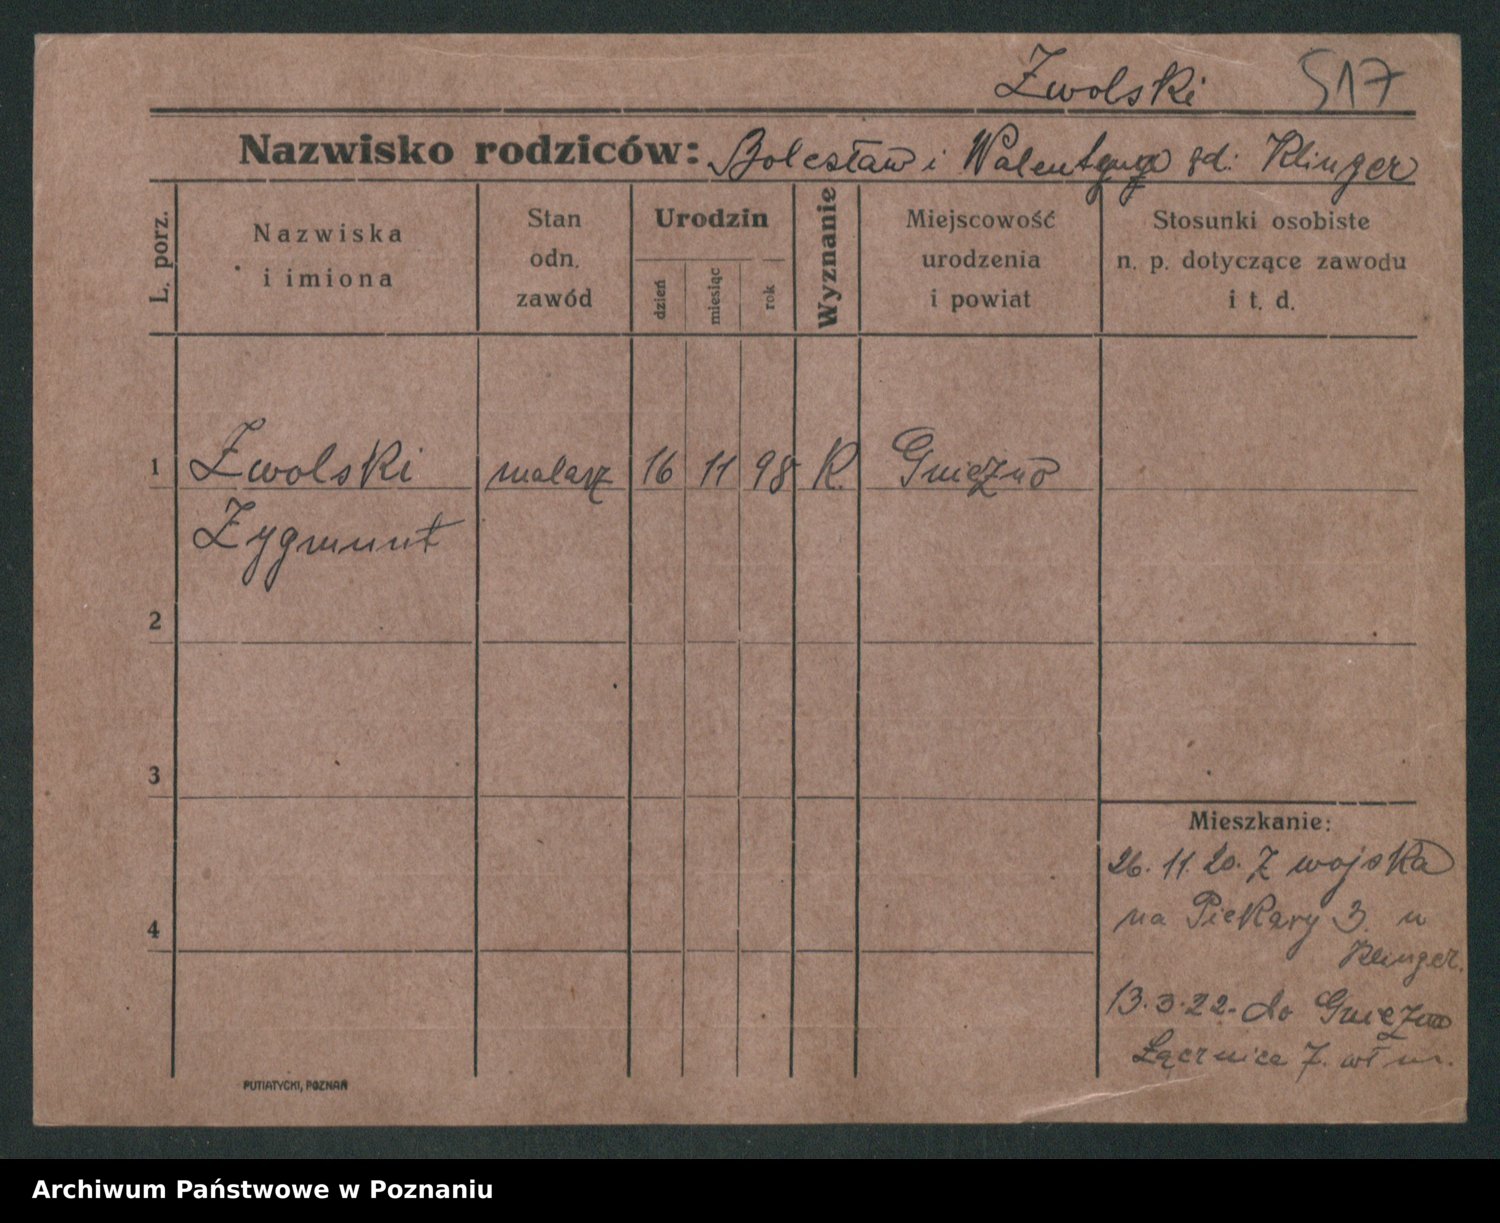 Zwolski 517
Nazwisko rodziców: Bolesław i Walentyna gd: Klinger
L. porz.
Nazwiska i imiona
Stan odn. zawód
Urodzin
dzień
miesiąc
rok
Wyznanie
Miejscowość urodzenia i powiat
Stosunki osobiste n. p. dotyczące zawodu i t. d.
1 Zwolski malarz 16 11 98 K. Gniezno
Zygmunt
2
3
4
Mieszkanie:
26. 11. 20. Z wojska
na Piekary 3. u
Klinger.
13.3.22. do Gniezno
Łącznica 7. wł m.
PUTIATYCKI, POZNAŃ
Archiwum Państwowe w Poznaniu